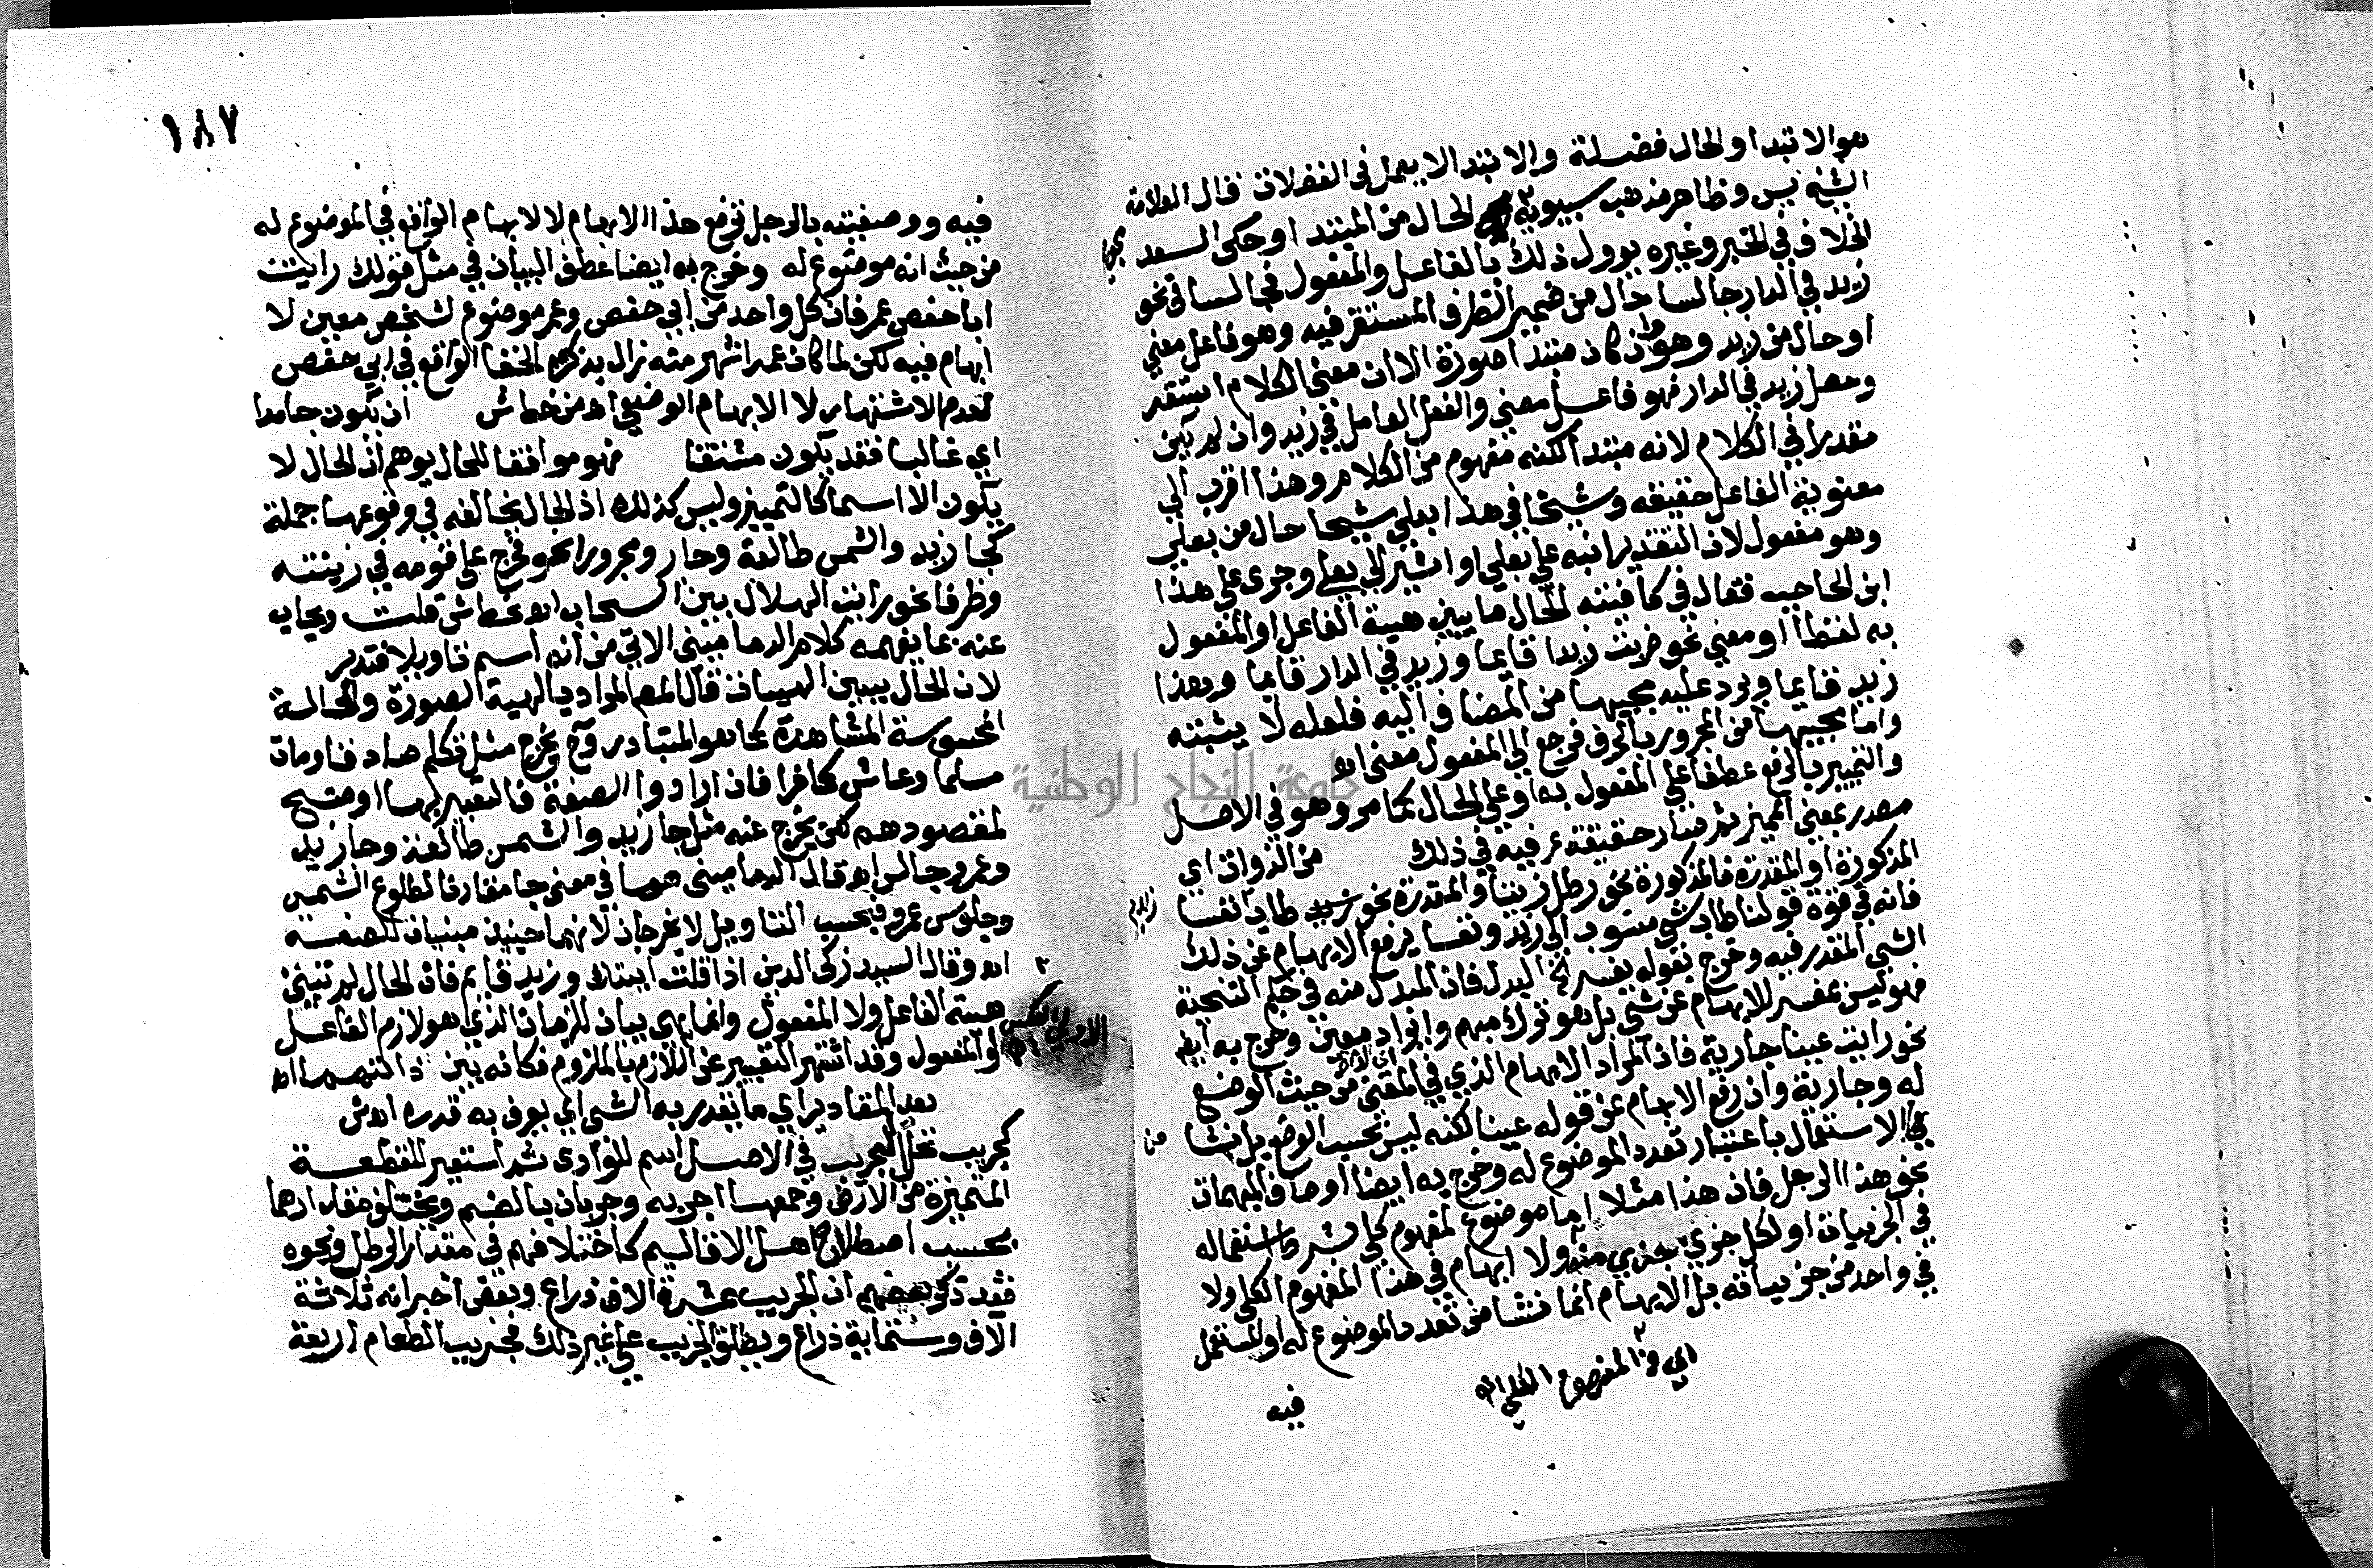 هو الابتدا والحال فضلة والابتدا لا يعمل في الفضلات قال العلامة
الشيخ يس وظاهر مذهب سيبويه الحال من المبتدا وحكى السعد
الخلاف في الخبر وغيره يوول ذلك بالفاعل والمفعول فجالسا في نحو
زيد في الدار جالسا حال من ضمير الظرف المستقر فيه وهو فاعل معنى
او حال من زيد وهو وان كان مبتدا صورة الا ان معنى الكلام استقر
وحصل زيد في الدار فهو فاعل معنى والفعل العامل في زيد وان لم يكن
مقدرا في الكلام لانه مبتدا لكنه مفهوم من الكلام وهذا اقرب الى
معنوية الفاعل حقيقة وشيخا في هذا بعلي شيخا حال من بعلي
وهو مفعول لان التقدير انبه على بعلي او اشير الى بعلي وجرى على هذا
ابن الحاجب فقال في كافيته الحال ما يبين هيئة الفاعل او المفعول
به لفظا او معنى نحو ضربت زيدا قايما وزيد في الدار قايما وهذا
زيد قايما ويرد عليه مجيها من المضاف اليه فلعله لا يثبته
واما مجيها من المجرور بالحرف فرجع الى المفعول معنى اه
والتمييز بالرفع عطفا على المفعول به او على الحال كما مر وهو في الاصل
مصدر بمعنى المميز ثم صار حقيقة عرفية في ذلك من الذوات اي
المذكورة او المقدرة فالمذكورة نحو رطل زيتا والمقدرة نحو طاب نفسا
زيد
فانه في قوة قولنا طاب شي منسوب الى زيد ونفسا يرفع الابهام عن ذلك
الشي المقدر فيه وخرج بقوله يفسر الخ البدل فان المبدل منه في حكم التنحية
فهو ليس بمفسر للابهام عن شي بل هو ترك مبهم وايراد معين وخرج به ايضا
نحو رايت عينا جارية فان المراد الابهام الذي في المعنى من حيث الوضع
له وجارية وان رفع الابهام عن قوله عينا لكنه ليس بحسب الوضع بل نشا
في الاستعمال باعتبار تعدد الموضوع له وخرج به ايضا اوصاف المبهمات
نحو هذا الرجل فان هذا مثلا اما موضوع لمفهوم كلي بشرط استعماله
في الجزييات او لكل جزي جزي منه ولا ابهام في هذا المفهوم الكلي ولا
في واحد من جزيياته بل الابهام انما نشا من تعدد الموضوع له او المستعمل
فيه
١٨٧
فيه ووصفيته بالرجل ترفع هذا الابهام لا الابهام الواقع في الموضوع له
من حيث انه موضوع له وخرج به ايضا عطف البيان في مثل قولك رايت
ابا حفص عمر فان كل واحد من ابي حفص وعمر موضوع لشخص معين لا
ابهام فيه لكن لما كان عمر اشهر منه زال بذكره الخفا الواقع في ابي حفص
لعدم الاشتهار لا الابهام الوضعي اه من خط ش ان يكون جامدا
اي غالبا فقد يكون مشتقا فهو موافقا للحال يوهم ان الحال لا
يكون الا اسما كالتمييز وليس كذلك اذ الحال يخالفه في وقوعها جملة
كجا زيد والشمس طالعة وجار ومجرورا نحو فخرج على قومه في زينته
وظرفا نحو رايت الهلال بين السحاب اه خط ش قلت ويجاب
عنه بما يفهمه كلام الدماميني الاتي من انه اسم تاويلا فتدبر
لان الحال يبين الهيات قال المص المراد بالهيية الصورة والحالة
المحسوسة المشاهدة كما هو المتبادر وح يخرج مثل تكلم صادقا ومات
مسلما وعاش كافرا فان ارادوا الصفة فالتعبير بها اوضح
لمقصودهم لكن يخرج عنه مثل جا زيد والشمس طالعة وجا زيد
وعمرو جالس اه قال الدماميني هما في معنى جا مقارنا لطلوع الشمس
وجلوس عمرو فبحسب التاويل لا يخرجان لانهما حينيذ مبنيان للصفة
اه وقال السيد زكى الدين اذا قلت اتيتك وزيد قايم فان الحال لم تبين
هيئة الفاعل ولا المفعول وانما هي بيان للزمان الذي هو لازم الفاعل
او المفعول وقد اشتهر التعبير عن اللازم بالملزوم فكانه بين ذاتهما اه
بعد المقادير اي ما يقدر به الشي اي يعرف به قدره اه ش
كجريب نخل الجريب في الاصل اسم للوادى ثم استعير للقطعة
المتميزة من الارض وجمعها اجربه وجربان بالضم ويختلف مقدارها
بحسب اصطلاح اهل الاقاليم كاختلافهم في مقدار الرطل ونحوه
فقد ذكر بعضهم ان الجريب عشرة الاف ذراع وبعض اخر انه ثلاثة
الاف وستماية ذراع ويطلق الجريب على غير ذلك فجريب الطعام اربعة
جامعة النجاح الوطنية